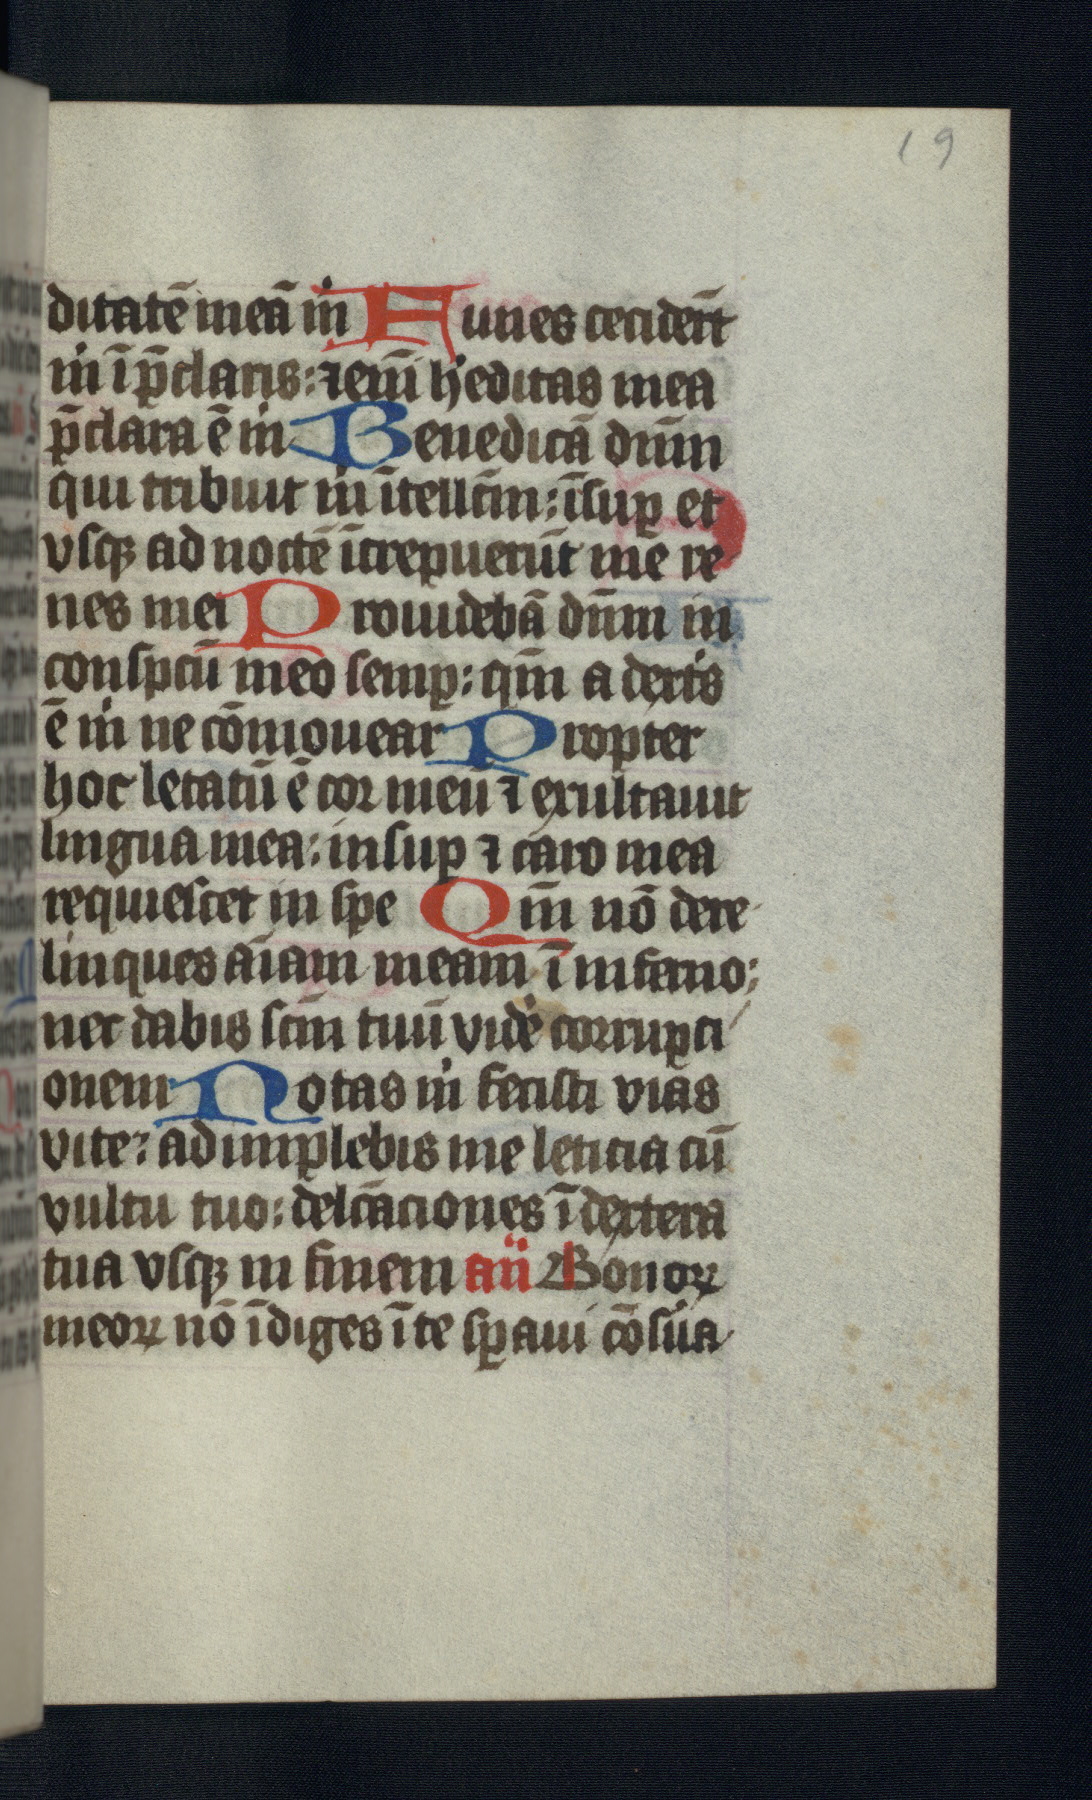 19
ditatē meā m̄ Funes cecider̄t
m̄ ī p̄claris: ⁊em̄ h̓editas mea
p̄clara ē m̄ Benedicā dn̄m
qui tribuit m̄ ītellc̄m: īsuꝑ et
vsqꝫ ad noctē īcrepuerūt me re
nes mei Prouidebā dn̄m in
conspcū meo semꝑ: qm̄ a dexr̄is
ē m̄ ne cōmouear Propter
hoc letatū ē cor meū ⁊ exultauit
lingua mea: insuꝑ ⁊ caro mea
requiescet in spe Qm̄ nō dere
linques aīam meam ī inferno:
nec dabis scm̄ tuū vide̓ corrupci
onem Notas m̄ fecisti vias
vite: adimplebis me leticia cū
vultu tuo: delc̄aciones ī dextera
tua vsqꝫ in finem an̄ Bonoꝝ
meoꝝ nō īdiges ī te sꝑaui cōs̓ua